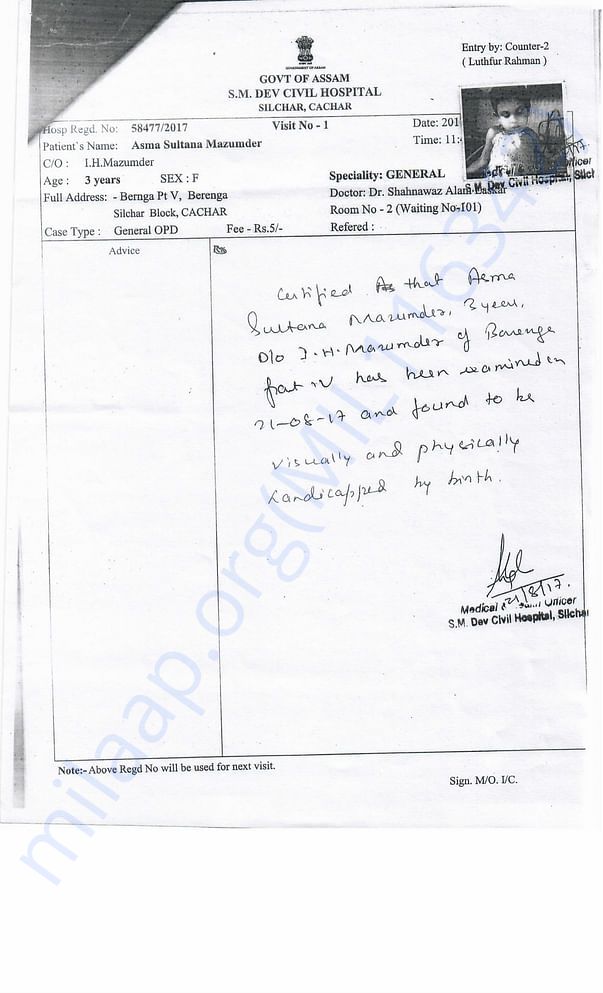 Entry by: Counter-2
( Luthfur Rahman )
GOVERNMENT OF ASSAM
GOVT OF ASSAM
S.M. DEV CIVIL HOSPITAL
SILCHAR, CACHAR
Hosp Regd. No: 58477/2017 Visit No - 1 Date: 201
Patient's Name: Asma Sultana Mazumder Time: 11:
C/O : I.H.Mazumder
Age : 3 years SEX : F Speciality: GENERAL
Full Address: - Bernga Pt V, Berenga Doctor: Dr. Shahnawaz Alam
Silchar Block, CACHAR Room No - 2 (Waiting No-101)
Case Type : General OPD Fee - Rs.5/- Refered :
S.M. Dev Civil Hospital, Silch
Advice
Certified that Asma
Sultana Mazumder, 3 years,
D/o I.H. Mazumder of Barenga
part IV has been examined on
21-08-17 and found to be
visually and physically
handicapped by birth.
21/8/17.
Medical & Officer
S.M. Dev Civil Hospital, Silchar
Note:- Above Regd No will be used for next visit.
Sign. M/O. I/C.
milaap.org(MIL11634